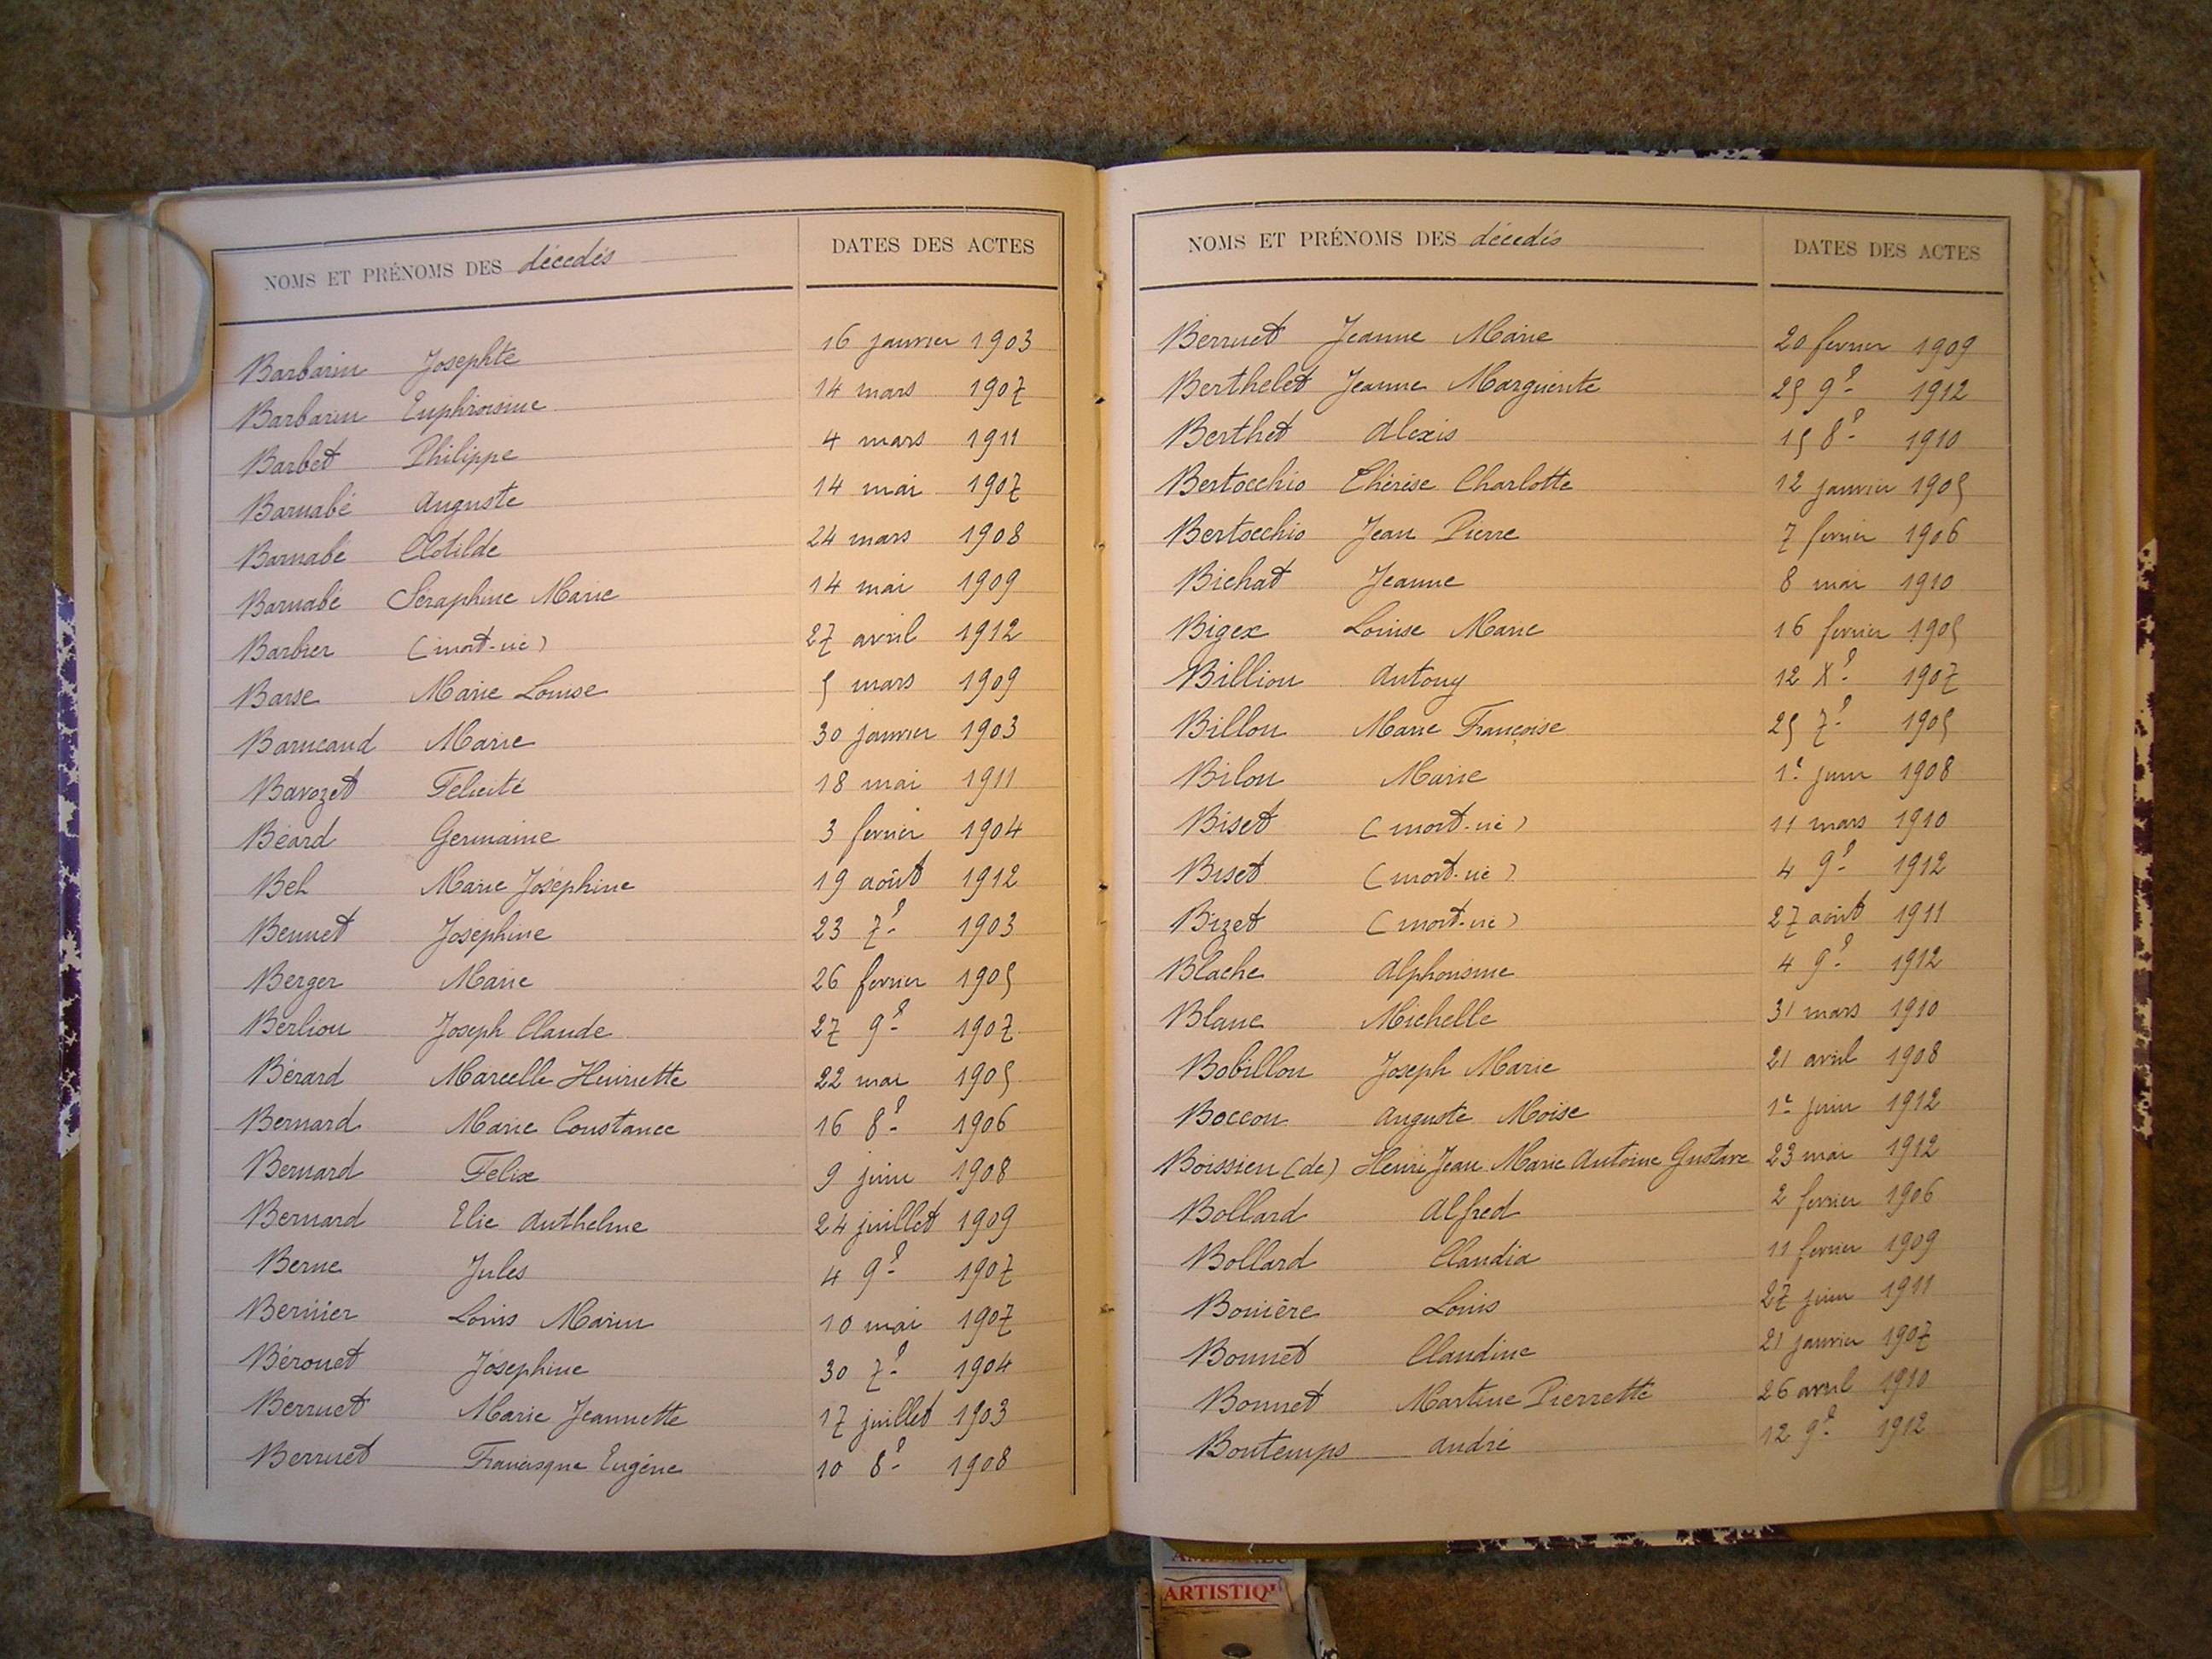 NOMS ET PRÉNOMS DES décédés DATES DES ACTES
Barbarin Josephte 16 janvier 1903
Barbarin Euphrosine 14 mars 1907
Barbet Philippe 4 mars 1911
Barnabé Auguste 14 mai 1907
Barnabé Clotilde 24 mars 1908
Barnabé Séraphine Marie 14 mai 1909
Barbier (mort-né) 27 avril 1912
Barse Marie Louise 5 mars 1909
Barucand Marie 30 janvier 1903
Bavozet Félicité 18 mai 1911
Béard Germaine 3 fevrier 1904
Bel Marie Joséphine 19 août 1912
Bennet Joséphine 23 7e 1903
Berger Marie 26 fevrier 1905
Berlion Joseph Claude 27 9e 1907
Bérard Marcelle Henriette 22 mai 1905
Bernard Marie Constance 16 8e 1906
Bernard Félix 9 juin 1908
Bernard Elie Anthelme 24 juillet 1909
Berne Jules 4 9e 1907
Bernier Louis Marin 10 mai 1907
Bérouet Joséphine 30 7e 1904
Berruet Marie Jeannette 17 juillet 1903
Berruet Francisque Eugène 10 8e 1908
NOMS ET PRÉNOMS DES décédés DATES DES ACTES
Berruet Jeanne Marie 20 fevrier 1909
Berthelet Jeanne Marguerite 25 9e 1912
Berthet Alexis 15 8e 1910
Bertocchio Thérèse Charlotte 12 janvier 1905
Bertocchio Jean Pierre 7 fevrier 1906
Bichat Jeanne 8 mai 1910
Bigex Louise Marie 16 fevrier 1905
Billion Antony 12 Xe 1907
Billon Marie Françoise 25 7e 1905
Bilon Marie 1e juin 1908
Biset (mort-né) 11 mars 1910
Biset (mort-né) 4 9e 1912
Bizet (mort-né) 27 août 1911
Blache Alphonsine 4 9e 1912
Blanc Michelle 31 mars 1910
Bobillon Joseph Marie 21 avril 1908
Boccon Auguste Moïse 1e juin 1912
Boissieu (de) Henri Jean Marie Antoine Gustave 23 mai 1912
Bollard Alfred 2 fevrier 1906
Bollard Claudia 11 fevrier 1909
Bonière Louis 27 juin 1911
Bonnet Claudine 21 janvier 1907
Bonnet Martine Pierrette 26 avril 1910
Bontemps André 12 9e 1912
ARTISTIQU